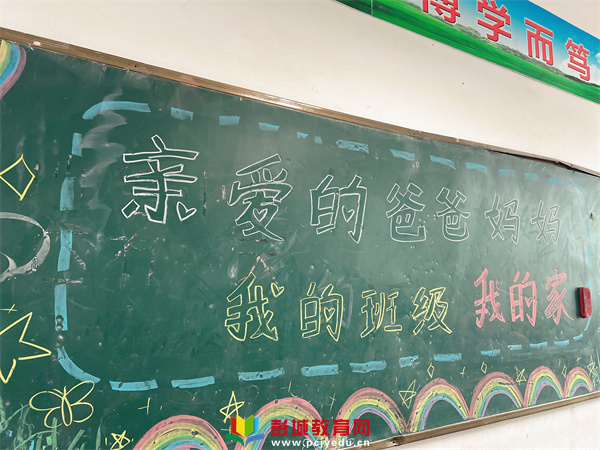 博学而笃
亲爱的爸爸妈妈
我的班级 我的家
彭城教育网
www.pcjyedu.cn